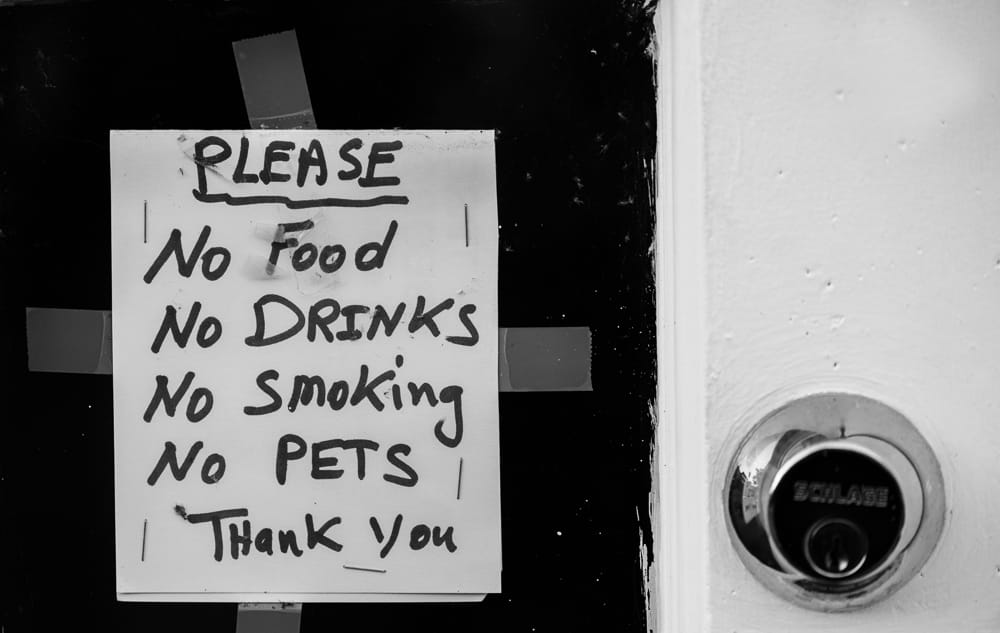 PLEASE
No Food
No DRINKS
No Smoking
No PETS
THank You
SCHLAGE